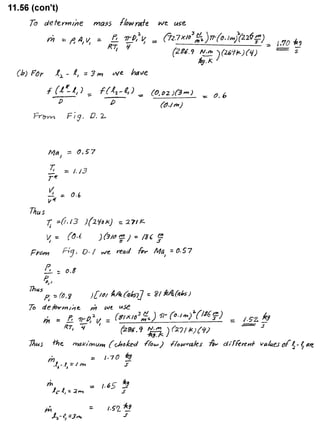 11.56 (con't)
To determine mass flowrate we use
ṁ = ρ₁ A₁ V₁ = P₁/RT₁ π D₁²/4 V₁ = (72.7×10³ N/m²) π (0.1m)² (225 m/s) / (286.9 N.m/kg.K)(267K)(4) = 1.70 kg/s
(b) For ℓ₂ - ℓ₁ = 3 m we have
f(ℓ*-ℓ₁)/D = f(ℓ₂-ℓ₁)/D = (0.02)(3m)/(0.1m) = 0.6
From Fig. D.2
Ma₁ = 0.57
T₁/T* = 1.13
V₁/V* = 0.6
Thus
T₁ = (1.13)(240K) = 271K
V₁ = (0.6)(310 m/s) = 186 m/s
From Fig. D.1 we read for Ma₁ = 0.57
P₁/P₀,₁ = 0.8
Thus
P₁ = (0.8)[101 kPa(abs)] = 81 kPa(abs)
To determine ṁ we use
ṁ = P₁/RT₁ π D₁²/4 V₁ = (81×10³ N/m²) π (0.1m)² (186 m/s) / (286.9 N.m/kg.K)(271K)(4) = 1.52 kg/s
Thus the maximum (choked flow) flowrates for different values of ℓ₂-ℓ₁ are
ṁ ℓ₂-ℓ₁=1m = 1.70 kg/s
ṁ ℓ₂-ℓ₁=2m = 1.65 kg/s
ṁ ℓ₂-ℓ₁=3m = 1.52 kg/s